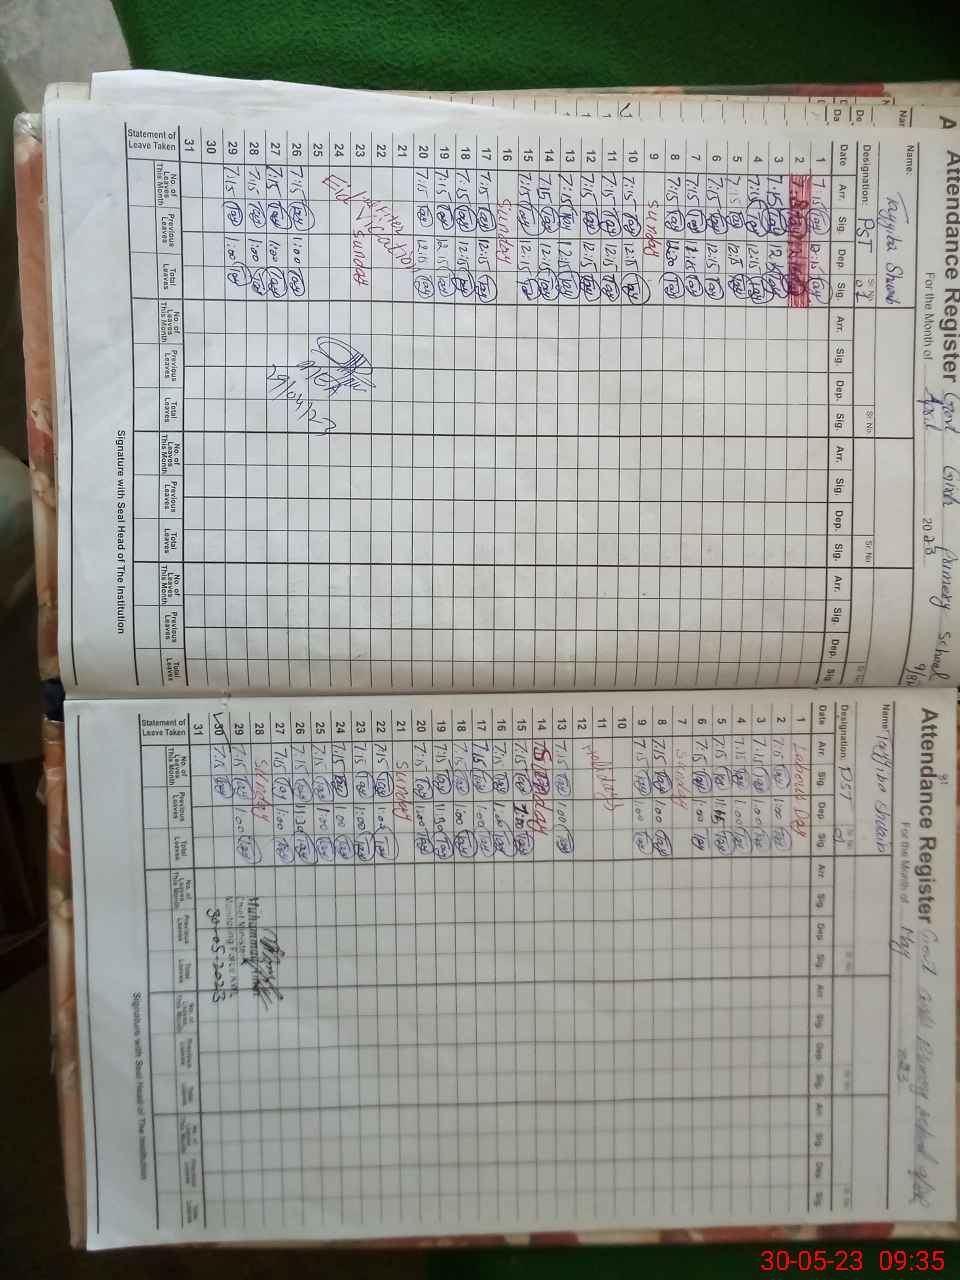 Attendance Register Govt Girls Primary School
For the Month of April 2023
Name: Tayyiba
Designation: PST Sr. No 01
Date Arr. Sig. Dep. Sig. Arr. Sig. Dep. Sig. Arr. Sig. Dep. Sig. Arr. Sig. Dep. Sig.
1 7:15 Tay 12:15 Tay
2
3 7:15 Tay 12:15 Tay
4 7:15 Tay 12:15 Tay
5 7:15 Tay 12:15 Tay
6 7:15 Tay 12:15 Tay
7 7:15 Tay Tay
8 7:15 Tay Tay
9 Sunday
10 7:15 Tay 12:15 Tay
11 7:15 Tay 12:15 Tay
12 7:15 Tay 12:15 Tay
13 7:15 Tay 12:15 Tay
14 7:15 Tay 12:15 Tay
15 7:15 Tay 12:15 Tay
16 Sunday
17 7:15 Tay 12:15 Tay
18 7:15 Tay 12:15 Tay
19 7:15 Tay 12:15 Tay
20 7:15 Tay 12:15 Tay
21
22
23 Sunday
24 Eid
25
26 7:15 Tay 1:00 Tay
27 7:15 Tay 1:00 Tay
28 7:15 Tay 1:00 Tay
29 7:15 Tay 1:00 Tay
30
31
29/04/23
Statement of Leave Taken
No. of Leaves This Month Previous Leaves Total Leaves No. of Leaves This Month Previous Leaves Total Leaves No. of Leaves This Month Previous Leaves Total Leaves No. of Leaves This Month Previous Leaves Total Leaves
Signature with Seal Head of The Institution
Attendance Register Govt Girls Primary School
For the Month of May 2023
Name: Tayyiba
Designation: PST Sr. No 01
Date Arr. Sig. Dep. Sig. Arr. Sig. Dep. Sig. Arr. Sig. Dep. Sig. Arr. Sig. Dep. Sig.
1 Labour Day
2 7:15 Tay 1:00 Tay
3 7:15 Tay 1:00 Tay
4 7:15 Tay 1:00 Tay
5 7:15 Tay Tay
6 7:15 Tay 1:00 Tay
7 Sunday
8 7:15 Tay 1:00 Tay
9 7:15 Tay 1:00 Tay
10
11
12
13 7:15 Tay 1:00 Tay
14 Sunday
15 7:15 Tay 1:00 Tay
16 7:15 Tay 1:00 Tay
17 7:15 Tay 1:00 Tay
18 7:15 Tay 1:00 Tay
19 7:15 Tay 11:30 Tay
20 7:15 Tay 1:00 Tay
21 Sunday
22 7:15 Tay 1:00 Tay
23 7:15 Tay 1:00 Tay
24 7:15 Tay 1:00 Tay
25 7:15 Tay 1:00 Tay
26 7:15 Tay 11:30 Tay
27 7:15 Tay 1:00 Tay
28 Sunday
29 7:15 Tay 1:00 Tay
30 7:15 Tay
31
Muhammad
Chief Minister's
Monitoring Force
30-05-2023
Statement of Leave Taken
No. of Leaves This Month Previous Leaves Total Leaves No. of Leaves This Month Previous Leaves Total Leaves No. of Leaves This Month Previous Leaves Total Leaves No. of Leaves This Month Previous Leaves Total Leaves
Signature with Seal Head of The Institution
30-05-23 09:35